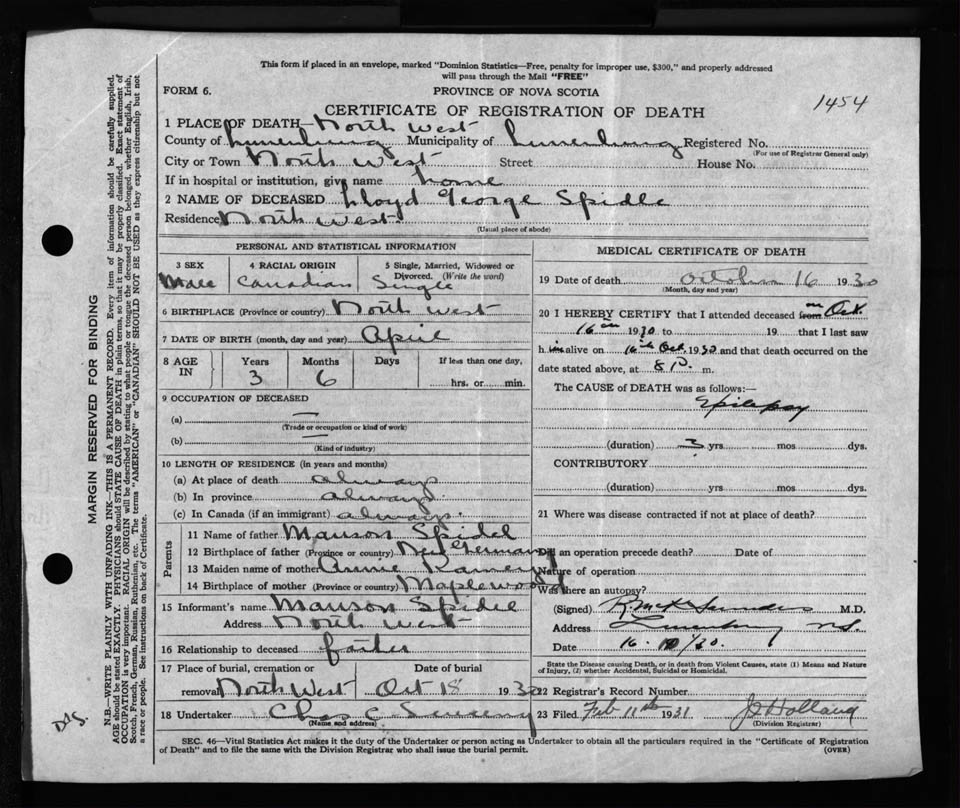 This form if placed in an envelope, marked "Dominion Statistics—Free, penalty for improper use, $300," and properly addressed
will pass through the Mail "FREE"
FORM 6.
PROVINCE OF NOVA SCOTIA
1454
CERTIFICATE OF REGISTRATION OF DEATH
1 PLACE OF DEATH— North West
County of Lunenburg Municipality of Lunenburg Registered No.
(For use of Registrar General only)
City or Town North West Street House No.
If in hospital or institution, give name home
2 NAME OF DECEASED Lloyd George Spidle
Residence North West
(Usual place of abode)
PERSONAL AND STATISTICAL INFORMATION
3 SEX 4 RACIAL ORIGIN 5 Single, Married, Widowed or
Divorced. (Write the word)
Male Canadian Single
6 BIRTHPLACE (Province or country) North West
7 DATE OF BIRTH (month, day and year) April
8 AGE IN Years Months Days If less than one day,
3 6 hrs. or min.
9 OCCUPATION OF DECEASED
(a) —
(Trade or occupation or kind of work)
(b) —
(Kind of industry)
10 LENGTH OF RESIDENCE (in years and months)
(a) At place of death always
(b) In province always
(c) In Canada (if an immigrant) always
Parents
11 Name of father Manson Spidel
12 Birthplace of father (Province or country) New Germany
13 Maiden name of mother Annie Ramey
14 Birthplace of mother (Province or country) Maplewood
15 Informant's name Manson Spidel
Address North West
16 Relationship to deceased father
17 Place of burial, cremation or Date of burial
removal North West Oct 18 1930
18 Undertaker Chas C
(Name and address)
MEDICAL CERTIFICATE OF DEATH
19 Date of death October 16 1930
(Month, day and year)
20 I HEREBY CERTIFY that I attended deceased from on Oct.
16th 1930 to 19 that I last saw
h im alive on 16th Oct. 1930 and that death occurred on the
date stated above, at 8 P. m.
The CAUSE of DEATH was as follows:—
Epilepsy
(duration) 3 yrs mos dys.
CONTRIBUTORY
(duration) yrs mos dys.
21 Where was disease contracted if not at place of death?
Did an operation precede death? Date of
Nature of operation
Was there an autopsy?
(Signed) Saunders M.D.
Address Lunenburg N.S.
Date 16.10/30.
State the Disease causing Death, or in death from Violent Causes, state (1) Means and Nature
of Injury, (2) whether Accidental, Suicidal or Homicidal.
22 Registrar's Record Number
23 Filed Feb 11th 1931 Holland
(Division Registrar)
SEC. 46—Vital Statistics Act makes it the duty of the Undertaker or person acting as Undertaker to obtain all the particulars required in the "Certificate of Registration
of Death" and to file the same with the Division Registrar who shall issue the burial permit. (OVER)
MARGIN RESERVED FOR BINDING
N.B.—WRITE PLAINLY WITH UNFADING INK—THIS IS A PERMANENT RECORD. Every item of information should be carefully supplied.
AGE should be stated EXACTLY. PHYSICIANS should STATE CAUSE OF DEATH in plain terms, so that it may be properly classified. Exact statement of
OCCUPATION is very important. RACIAL ORIGIN will be described by stating to what people or tongue the deceased person belonged, whether English, Irish,
Scotch, French, German, Russian, Ruthenian, etc. The terms "AMERICAN" or "CANADIAN" SHOULD NOT BE USED as they express citizenship but not
a race or people. See instructions on back of Certificate.